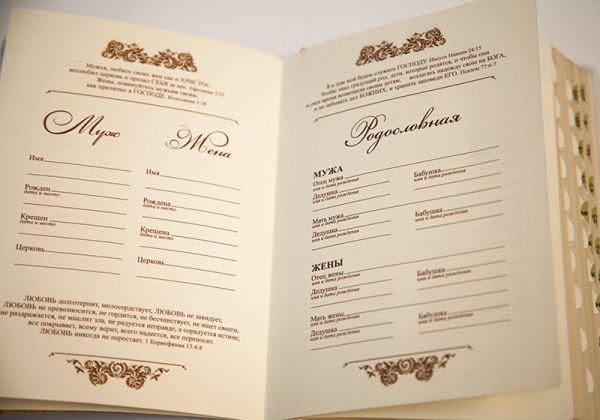 Мужья, любите своих жен как и ХРИСТОС
возлюбил церковь и предал СЕБЯ за нее. Ефесянам 5:25
Жены, повинуйтесь мужьям своим,
как прилично в ГОСПОДЕ. Колоссянам 3:18
Муж Жена
Имя Имя
Рожден Рождена
дата и место дата и место
Крещен Крещена
дата и место дата и место
Церковь Церковь
ЛЮБОВЬ долготерпит, милосердствует, ЛЮБОВЬ не завидует,
ЛЮБОВЬ не превозносится, не гордится, не бесчинствует, не ищет своего,
не раздражается, не мыслит зла, не радуется неправде, а сорадуется истине;
все покрывает, всему верит, всего надеется, все переносит.
ЛЮБОВЬ никогда не перестает. 1 Коринфянам 13:4-8
Я и дом мой будем служить ГОСПОДУ Иисус Навин 24:15
Чтобы знал грядущий род, дети, которые родятся, и чтобы они
в свое время возвещали своим детям, возлагать надежду свою на БОГА,
и не забывать дел БОЖИИХ, и хранить заповеди ЕГО. Псалом 77:6-7
Родословная
МУЖА
Отец мужа Бабушка
имя и дата рождения имя и дата рождения
Дедушка
имя и дата рождения
Мать мужа Бабушка
имя и дата рождения имя и дата рождения
Дедушка
имя и дата рождения
ЖЕНЫ
Отец жены Бабушка
имя и дата рождения имя и дата рождения
Дедушка
имя и дата рождения
Мать жены Бабушка
имя и дата рождения имя и дата рождения
Дедушка
имя и дата рождения